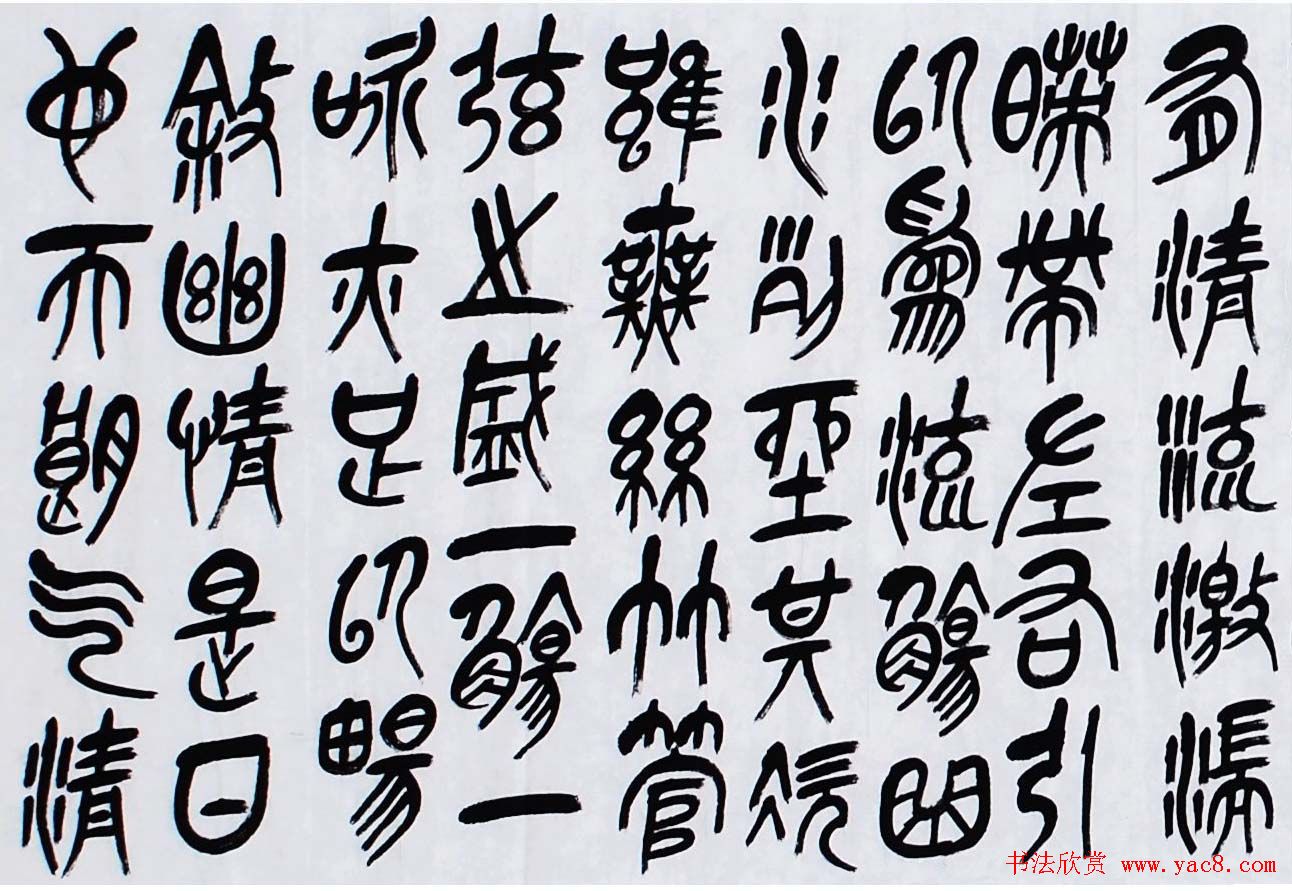 有清流激湍
暎帶左右引
以為流觴曲
水列坐其次
雖無絲竹管
弦之盛一觴一
咏亦足以暢
敘幽情是日
也天朗氣清
书法欣赏 www.yac8.com